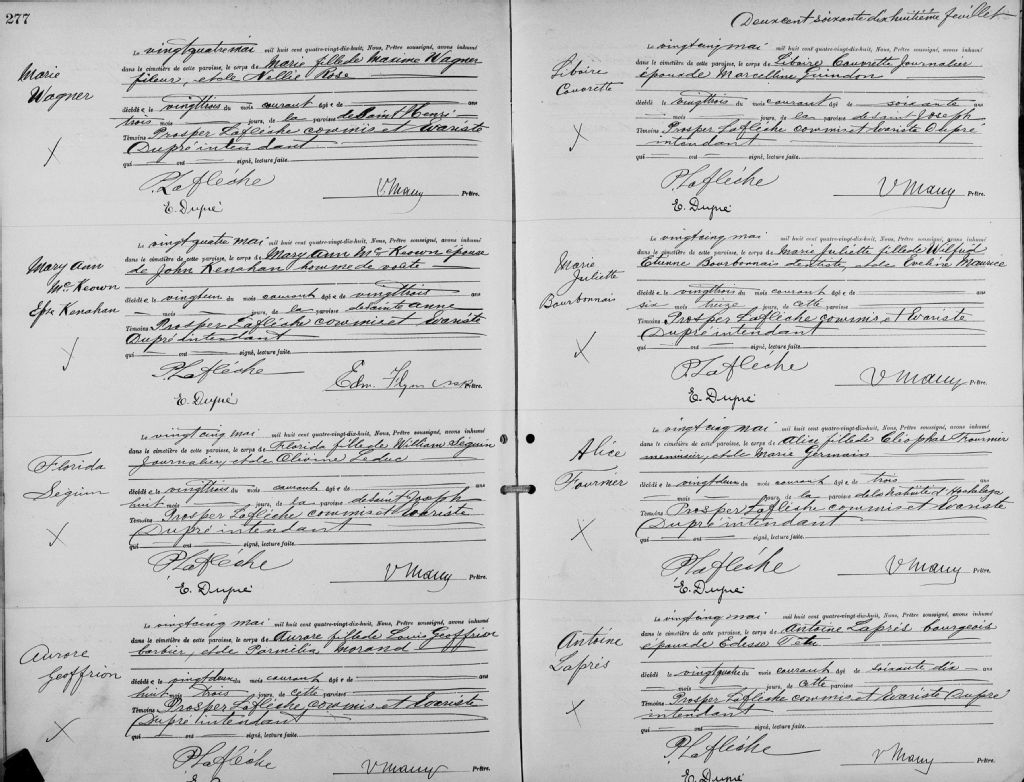 277
Marie
Wagner
Le vingtquatre mai mil huit cent quatre-vingt-dix-huit, Nous, Prêtre soussigné, avons inhumé
dans le cimetière de cette paroisse, le corps de Marie fille de Maxime Wagner
fileur, et de Nellie Rose
décédée le vingttrois du mois courant âgée de ans
trois mois jours, de la paroisse de Saint Henri
Témoins Prosper Laflèche commis et Evariste
Dupré intendant
qui ont signé, lecture faite.
P. Laflèche
V. Mauy Prêtre.
E. Dupré
Mary Ann
McKeown
Epse Kenahan
Le vingtquatre mai mil huit cent quatre-vingt-dix-huit, Nous, Prêtre soussigné, avons inhumé
dans le cimetière de cette paroisse, le corps de Mary Ann McKeown épouse
de John Kenahan homme de voûte
décédée le vingtun du mois courant âgée de vingttrois ans
mois jours, de la paroisse de Sainte Anne
Témoins Prosper Laflèche commis et Evariste
Dupré intendant
qui ont signé, lecture faite.
P. Laflèche
Edm. Flynn Prêtre.
E. Dupré
Florida
Séguin
Le vingtcinq mai mil huit cent quatre-vingt-dix-huit, Nous, Prêtre soussigné, avons inhumé
dans le cimetière de cette paroisse, le corps de Florida fille de William Séguin
journalier, et de Leduc
décédée le vingttrois du mois courant âgée de ans
huit mois jours, de la paroisse de Saint Joseph
Témoins Prosper Laflèche commis et Evariste
Dupré intendant
qui ont signé, lecture faite.
P. Laflèche
V Mauy Prêtre.
E. Dupré
Aurore
Geoffrion
Le vingtcinq mai mil huit cent quatre-vingt-dix-huit, Nous, Prêtre soussigné, avons inhumé
dans le cimetière de cette paroisse, le corps de Aurore fille de Louis Geoffrion
barbier, et de Parmélia Morand
décédée le vingtdeux du mois courant âgée de ans
huit mois trois jours, de cette paroisse
Témoins Prosper Laflèche commis et Evariste
Dupré intendant
qui ont signé, lecture faite.
P Laflèche
V Mauy Prêtre.
E. Dupré
Deuxcent soixante dixhuitième feuillet
Libaire
Couvrette
Le vingtcinq mai mil huit cent quatre-vingt-dix-huit, Nous, Prêtre soussigné, avons inhumé
dans le cimetière de cette paroisse, le corps de Libaire Couvrette journalier
époux de Marcelline Guindon
décédé le vingttrois du mois courant âgé de soixante ans
mois jours, de la paroisse de Saint Joseph
Témoins Prosper Laflèche commis et Evariste Dupré
intendant
qui ont signé, lecture faite.
P. Laflèche
V Mauy Prêtre.
E. Dupré
Marie
Juliette
Bourbonnais
Le vingtcinq mai mil huit cent quatre-vingt-dix-huit, Nous, Prêtre soussigné, avons inhumé
dans le cimetière de cette paroisse, le corps de Marie Juliette fille de Wilfrid
Etienne Bourbonnais dentiste, et de Eveline Maurice
décédée le vingttrois du mois courant âgée de ans
six mois treize jours, de cette paroisse
Témoins Prosper Laflèche commis, et Evariste
Dupré intendant
qui ont signé, lecture faite.
P. Laflèche
V Mauy Prêtre.
E. Dupré
Alice
Fournier
Le vingtcinq mai mil huit cent quatre-vingt-dix-huit, Nous, Prêtre soussigné, avons inhumé
dans le cimetière de cette paroisse, le corps de Alice fille de Cléophas Fournier
menuisier, et de Marie Germain
décédée le vingtdeux du mois courant âgée de trois ans
mois jours, de la paroisse de la Nativité d'Hochelaga
Témoins Prosper Laflèche commis et Evariste
Dupré intendant
qui ont signé, lecture faite.
P. Laflèche
V Mauy Prêtre.
E. Dupré
Antoine
Laprés
Le vingtcinq mai mil huit cent quatre-vingt-dix-huit, Nous, Prêtre soussigné, avons inhumé
dans le cimetière de cette paroisse, le corps de Antoine Laprés bourgeois
époux de Edesse
décédé le vingtquatre du mois courant âgé de soixante dix ans
mois jours, de cette paroisse
Témoins Prosper Laflèche commis et Evariste Dupré
intendant
qui ont signé, lecture faite.
P. Laflèche
V Mauy Prêtre.
E. Dupré